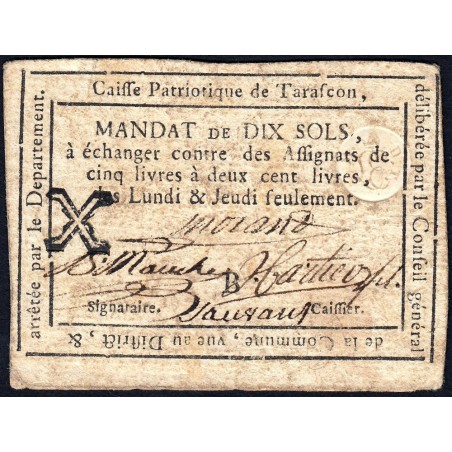 Caiſſe Patriotique de Taraſcon,
délibérée par le Conſeil général
de la Commune, vue au Diſtrict, &
arrêtée par le Département.
MANDAT DE DIX SOLS,
à échanger contre des Aſſignats de
cinq livres à deux cent livres,
les Lundi & Jeudi ſeulement.
X
B
Signataire. Caiſſier.